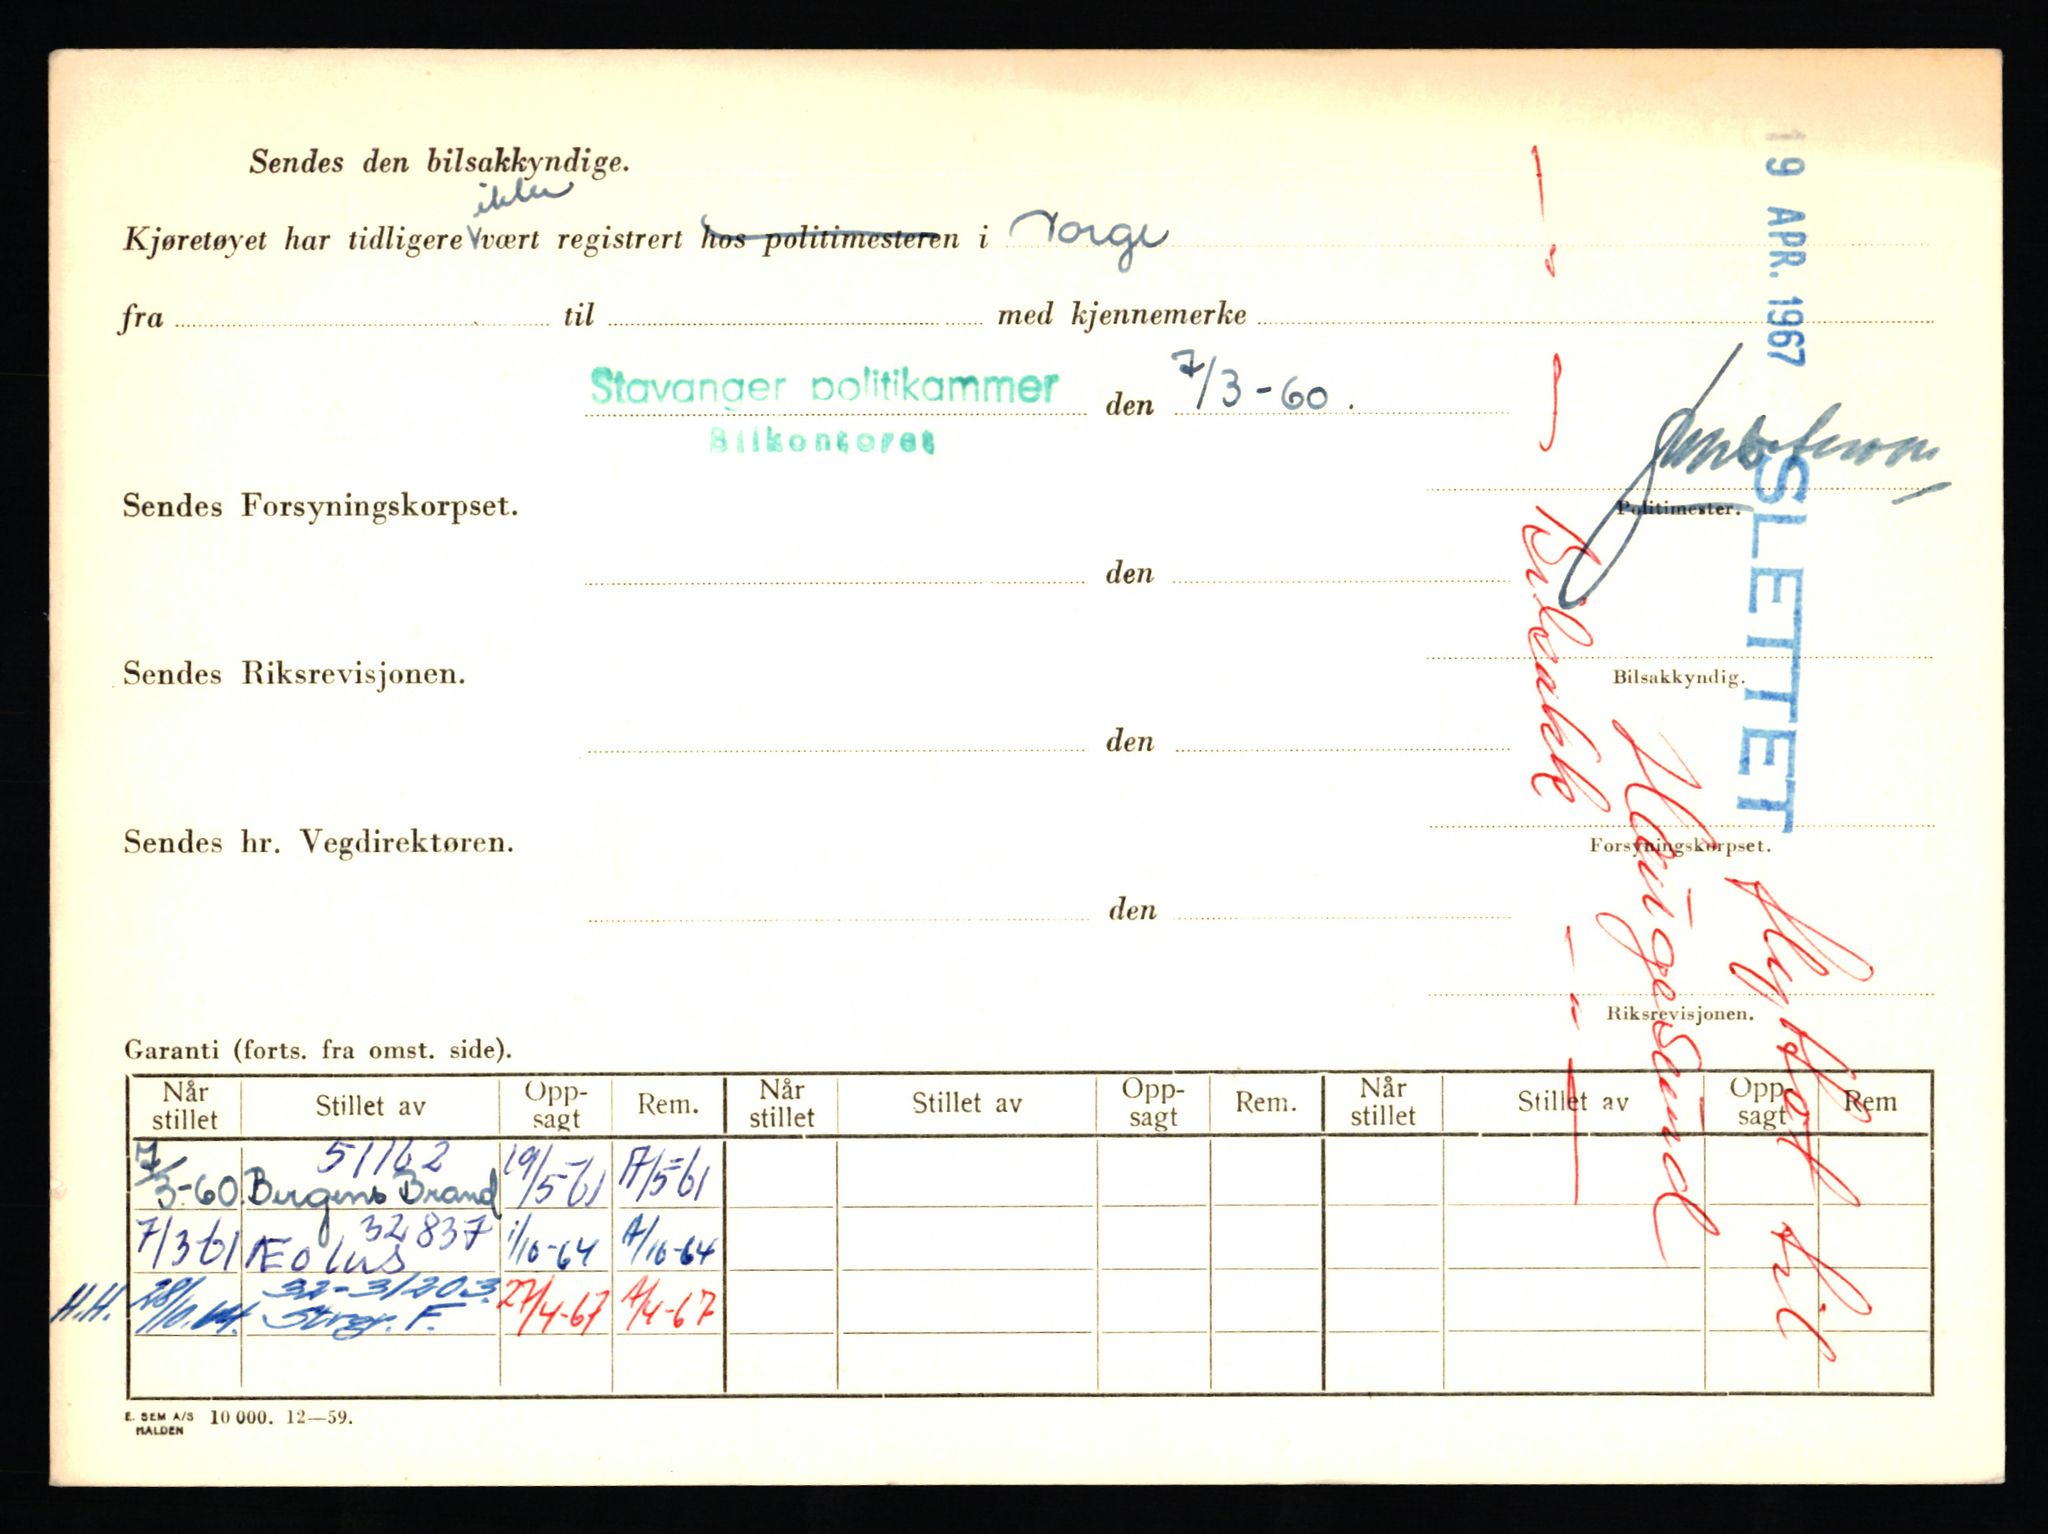 Sendes den bilsakkyndige.
ikke
Kjøretøyet har tidligere vært registrert hos politimesteren i Norge
fra til med kjennemerke
Stavanger politikammer den 7/3-60.
Bilkontoret
Sendes Forsyningskorpset.
Politimester.
den
Bilsakkyndig.
Sendes Riksrevisjonen.
den
Forsyningskorpset.
Sendes hr. Vegdirektøren.
den
Riksrevisjonen.
19 APR. 1967
SLETTET
flyttet til
Haugesund
Bilsakk
Garanti (forts. fra omst. side).
Når stillet Stillet av Opp-sagt Rem. Når stillet Stillet av Opp-sagt Rem. Når stillet Stillet av Opp-sagt Rem
51162
7/3-60 Bergens Brand 19/5-61 17/5-61
32837
7/3-61 ÆOlus 1/10-64 A/10-64
32-31203
H.H. 28/10.64. F. 27/4-67 A/4-67
E. SEM A/S 10 000. 12—59.
HALDEN